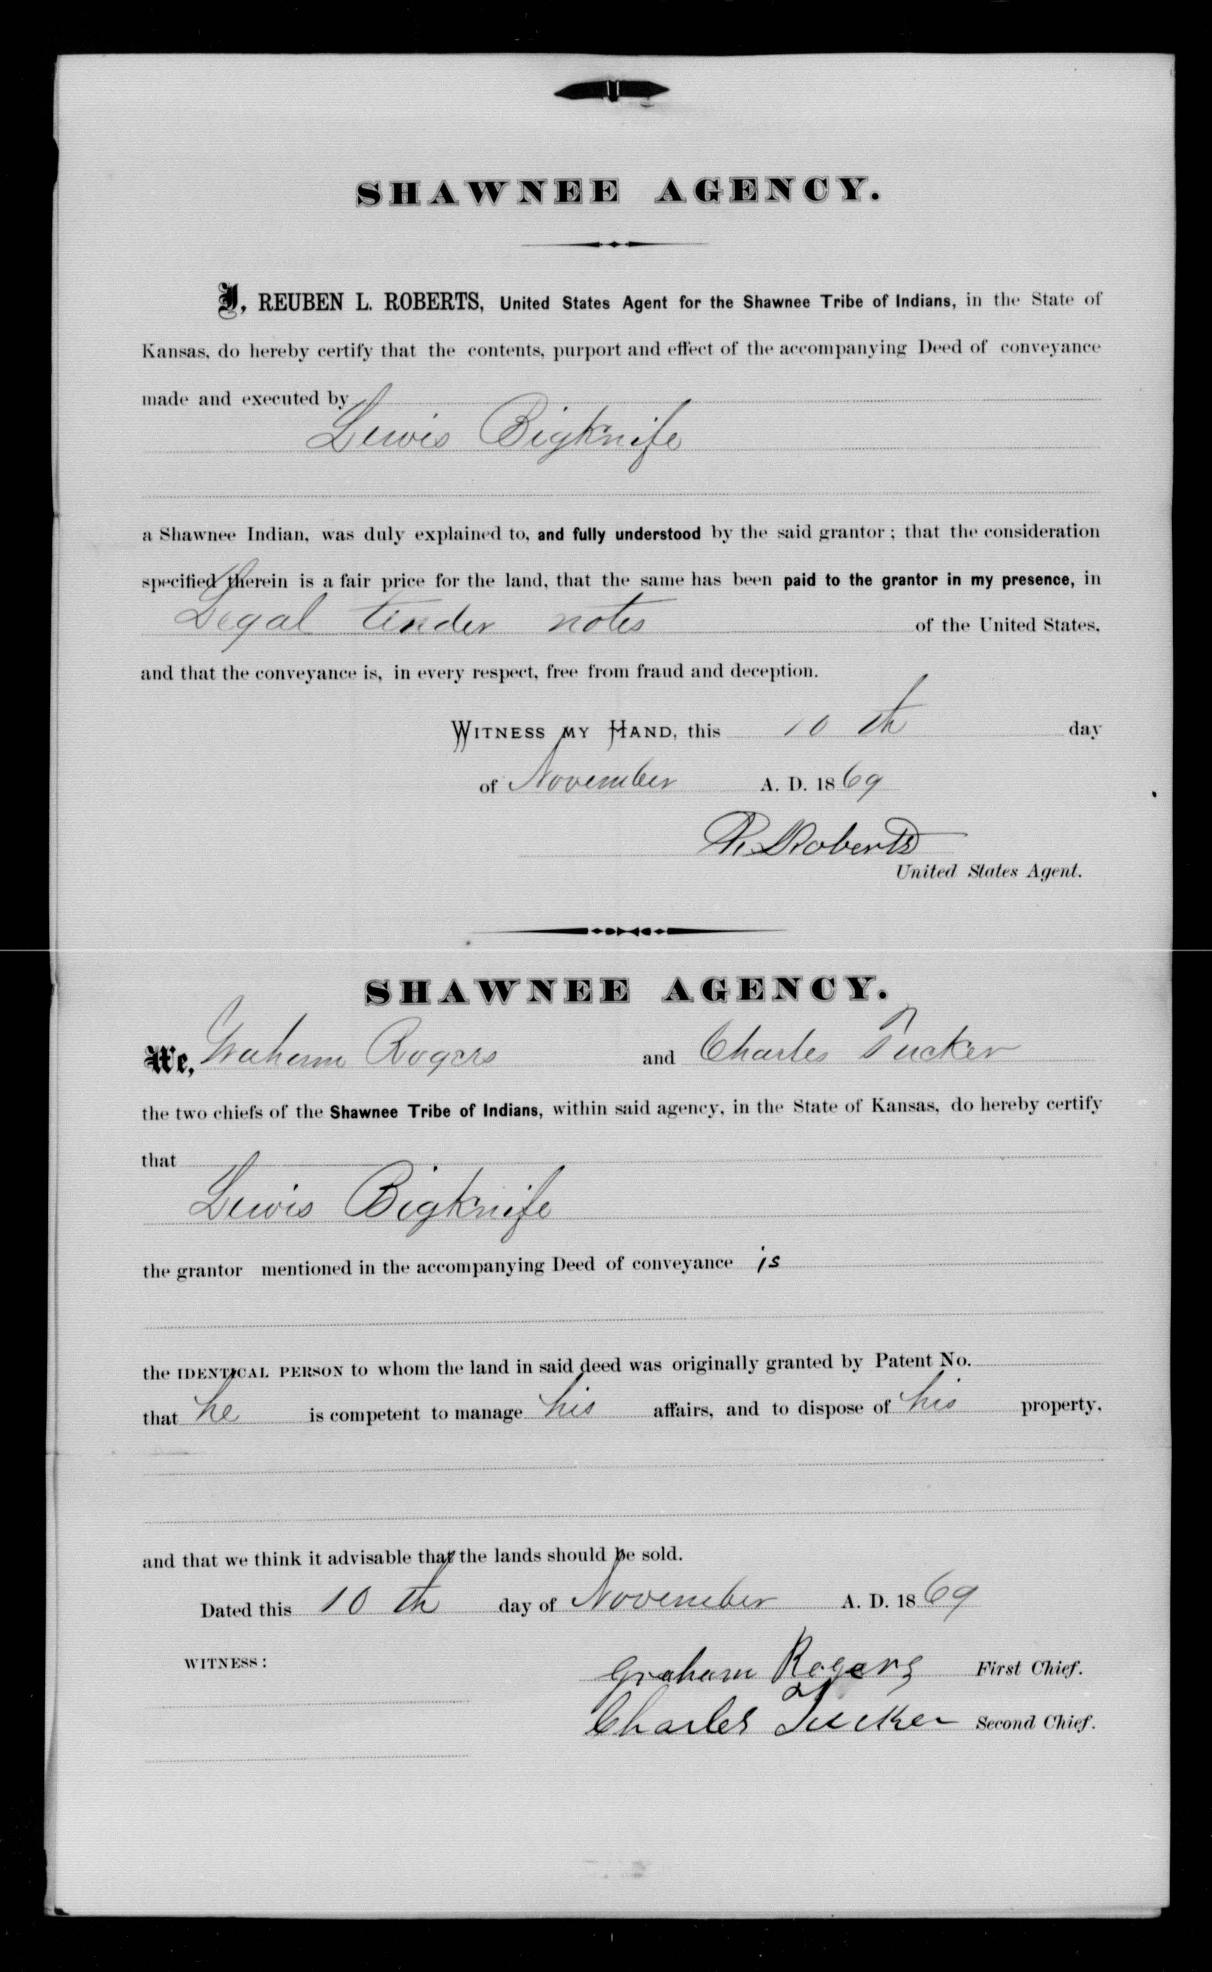 SHAWNEE AGENCY.
I, REUBEN L. ROBERTS, United States Agent for the Shawnee Tribe of Indians, in the State of
Kansas, do hereby certify that the contents, purport and effect of the accompanying Deed of conveyance
made and executed by
Lewis Bigknife
a Shawnee Indian, was duly explained to, and fully understood by the said grantor; that the consideration
specified therein is a fair price for the land, that the same has been paid to the grantor in my presence, in
Legal tender notes of the United States,
and that the conveyance is, in every respect, free from fraud and deception.
WITNESS MY HAND, this 10 th day
of November A. D. 1869
R. L Roberts
United States Agent.
SHAWNEE AGENCY.
We, Graham Rogers and Charles Tucker
the two chiefs of the Shawnee Tribe of Indians, within said agency, in the State of Kansas, do hereby certify
that
Lewis Bigknife
the grantor mentioned in the accompanying Deed of conveyance is
the IDENTICAL PERSON to whom the land in said deed was originally granted by Patent No.
that he is competent to manage his affairs, and to dispose of his property,
and that we think it advisable that the lands should be sold.
Dated this 10 th day of November A. D. 1869
WITNESS:
Graham Rogers First Chief.
Charles Tucker Second Chief.